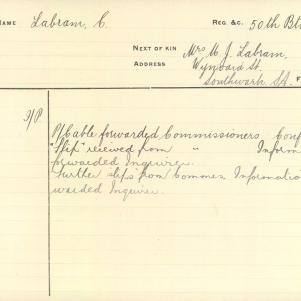 NAME Labram, C. REG. &C. 50th Bt
NEXT OF KIN Mrs M. J. Labram,
ADDRESS Wynyard St.
Southwark St.
P/Cable forwarded Commissioners, Conf
"Slip" received from " Inform
forwarded Inquirer.
Further slips from Common Informatio
warded Inquirer.